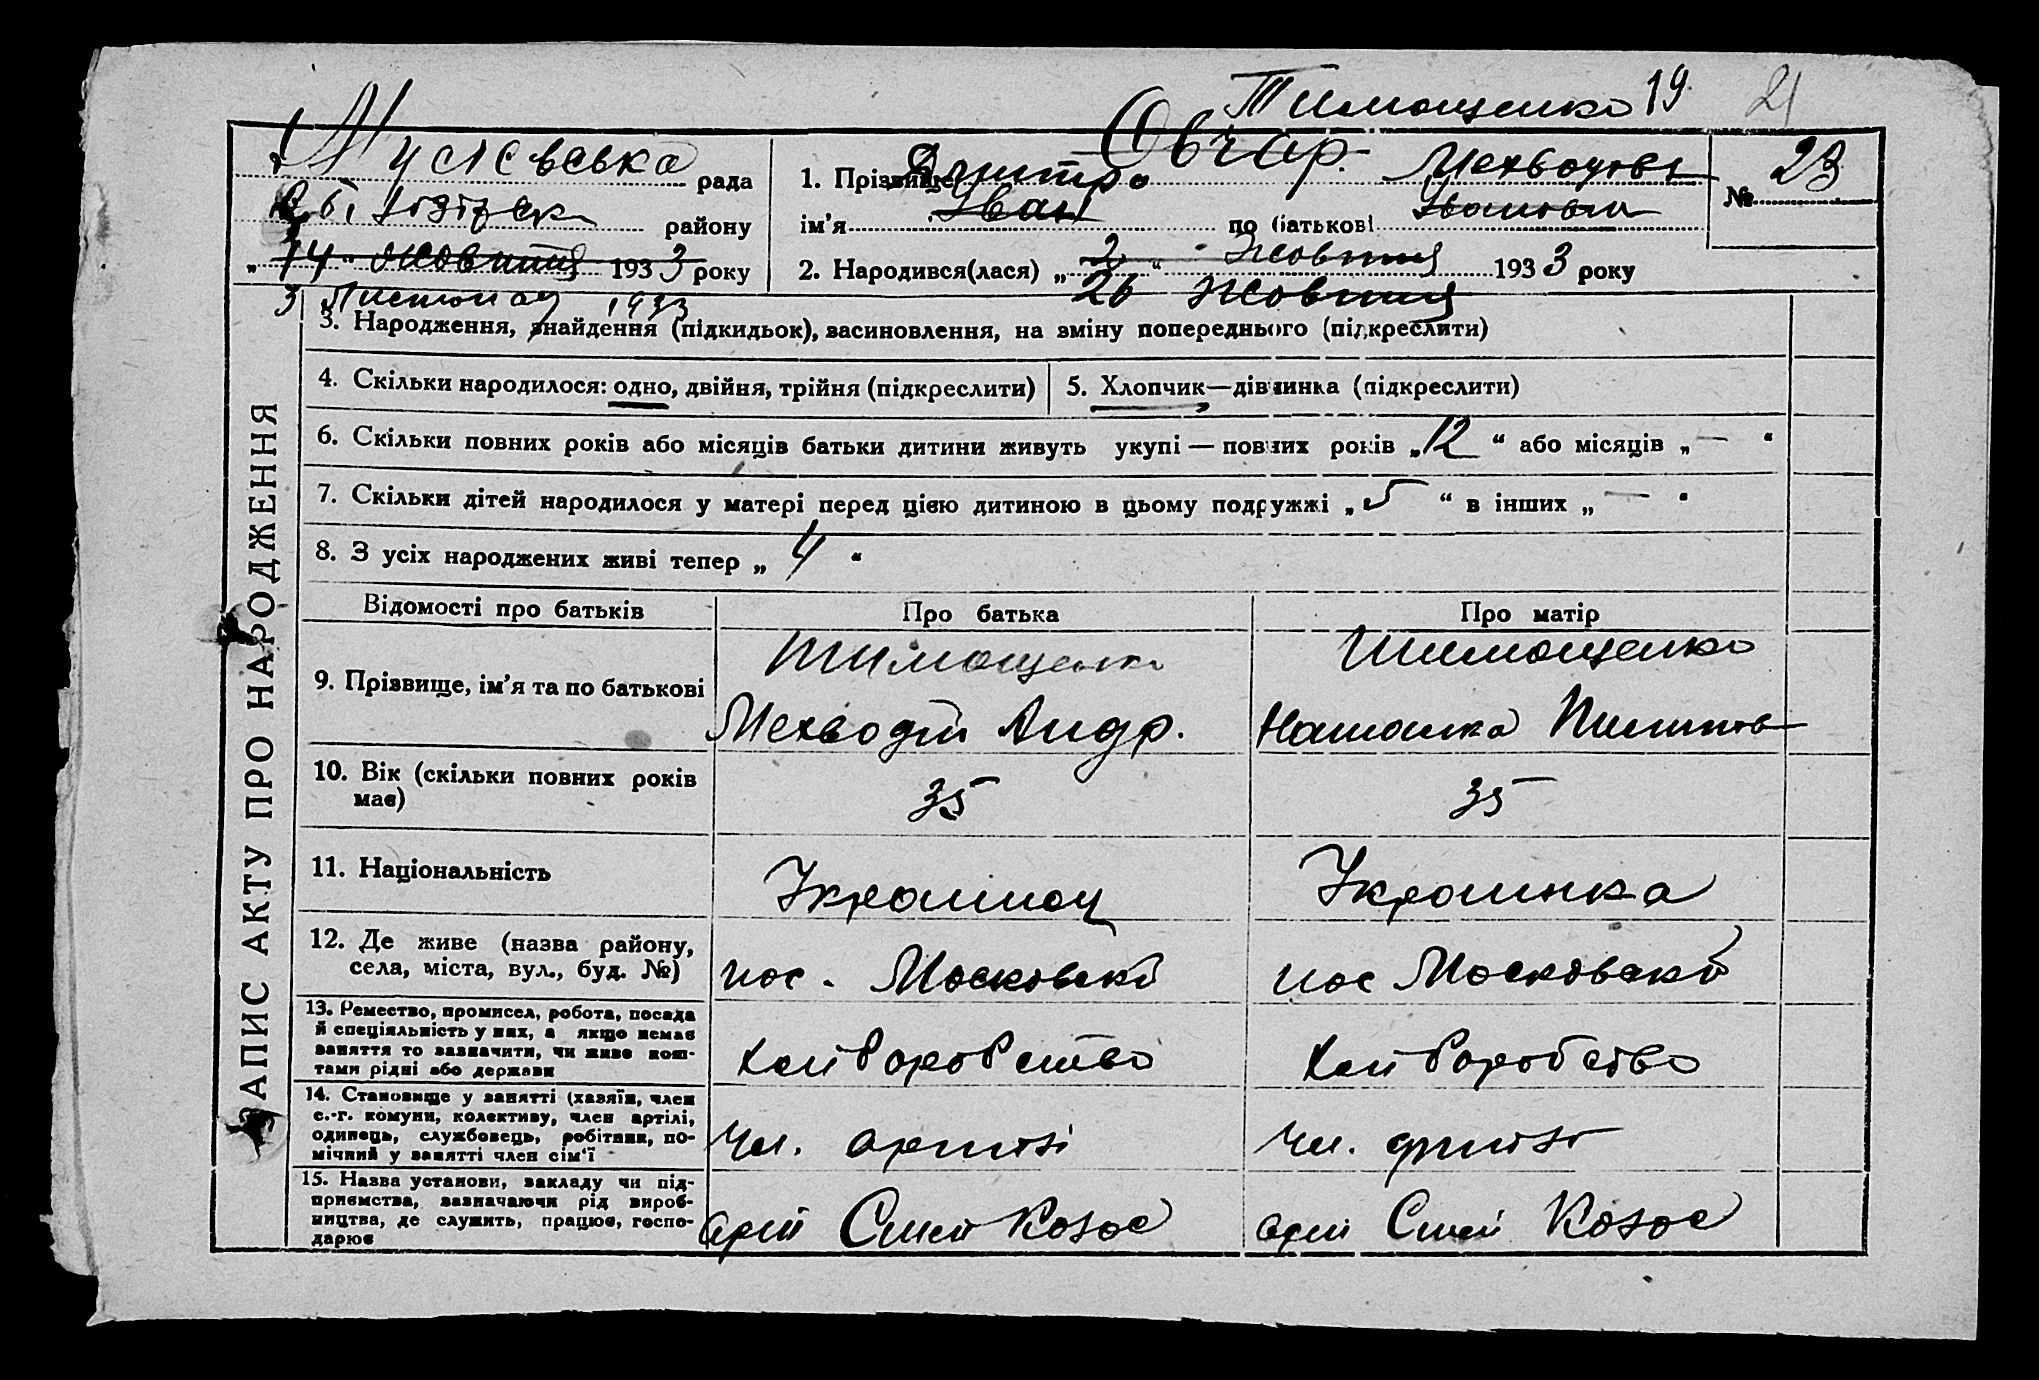 Тимощенко 19 21
Мусіевська рада
району
„14“ жовтня 1933 року
3 Листопад 1933
Овчар.
1. Прізвище Дмитро Мехводовч
ім’я Іван по батькові Іванович
№ 23
2. Народився(лася) „2“ Жовтня 1933 року
26 Жовтня
ЗАПИС АКТУ ПРО НАРОДЖЕННЯ
3. Народження, знайдення (підкидьок), васиновлення, на зміну попереднього (підкреслити)
4. Скільки народилося: одно, двійня, трійня (підкреслити)
5. Хлопчик—дівчинка (підкреслити)
6. Скільки повних років або місяців батьки дитини живуть укупі — повних років „12“ або місяців „—“
7. Скільки дітей народилося у матері перед цією дитиною в цьому подружжі „5“ в інших „—“
8. З усіх народжених живі тепер „4“
Відомості про батьків Про батька Про матір
9. Прізвище, ім’я та по батькові
Тимощенко
Мехводій Андр.
Тимощенко
Наталка Пилипов
10. Вік (скільки повних років
має)
35 35
11. Національність
Украинец Украинка
12. Де живе (назва району,
села, міста, вул., буд. №)
пос. Московскі пос Московскі
13. Ремество, промисел, робота, посада
й спеціяльність у них, а якщо немає
заняття то зазначити, чи живе кош-
тами рідні або держави
Хлиборобство Хлиборобство
14. Становище у занятті (хазяїн, член
с.-г. комуни, колективу, член артілі,
одинець, службовець, робітник, по-
мічний у занятті член сім‘ї
Чл. артілі Чл. артілі
15. Назва установи, закладу чи під-
приємства, зазначаючи рід вироб-
ництва, де служить, працює, госпо-
дарює
Колос Колос